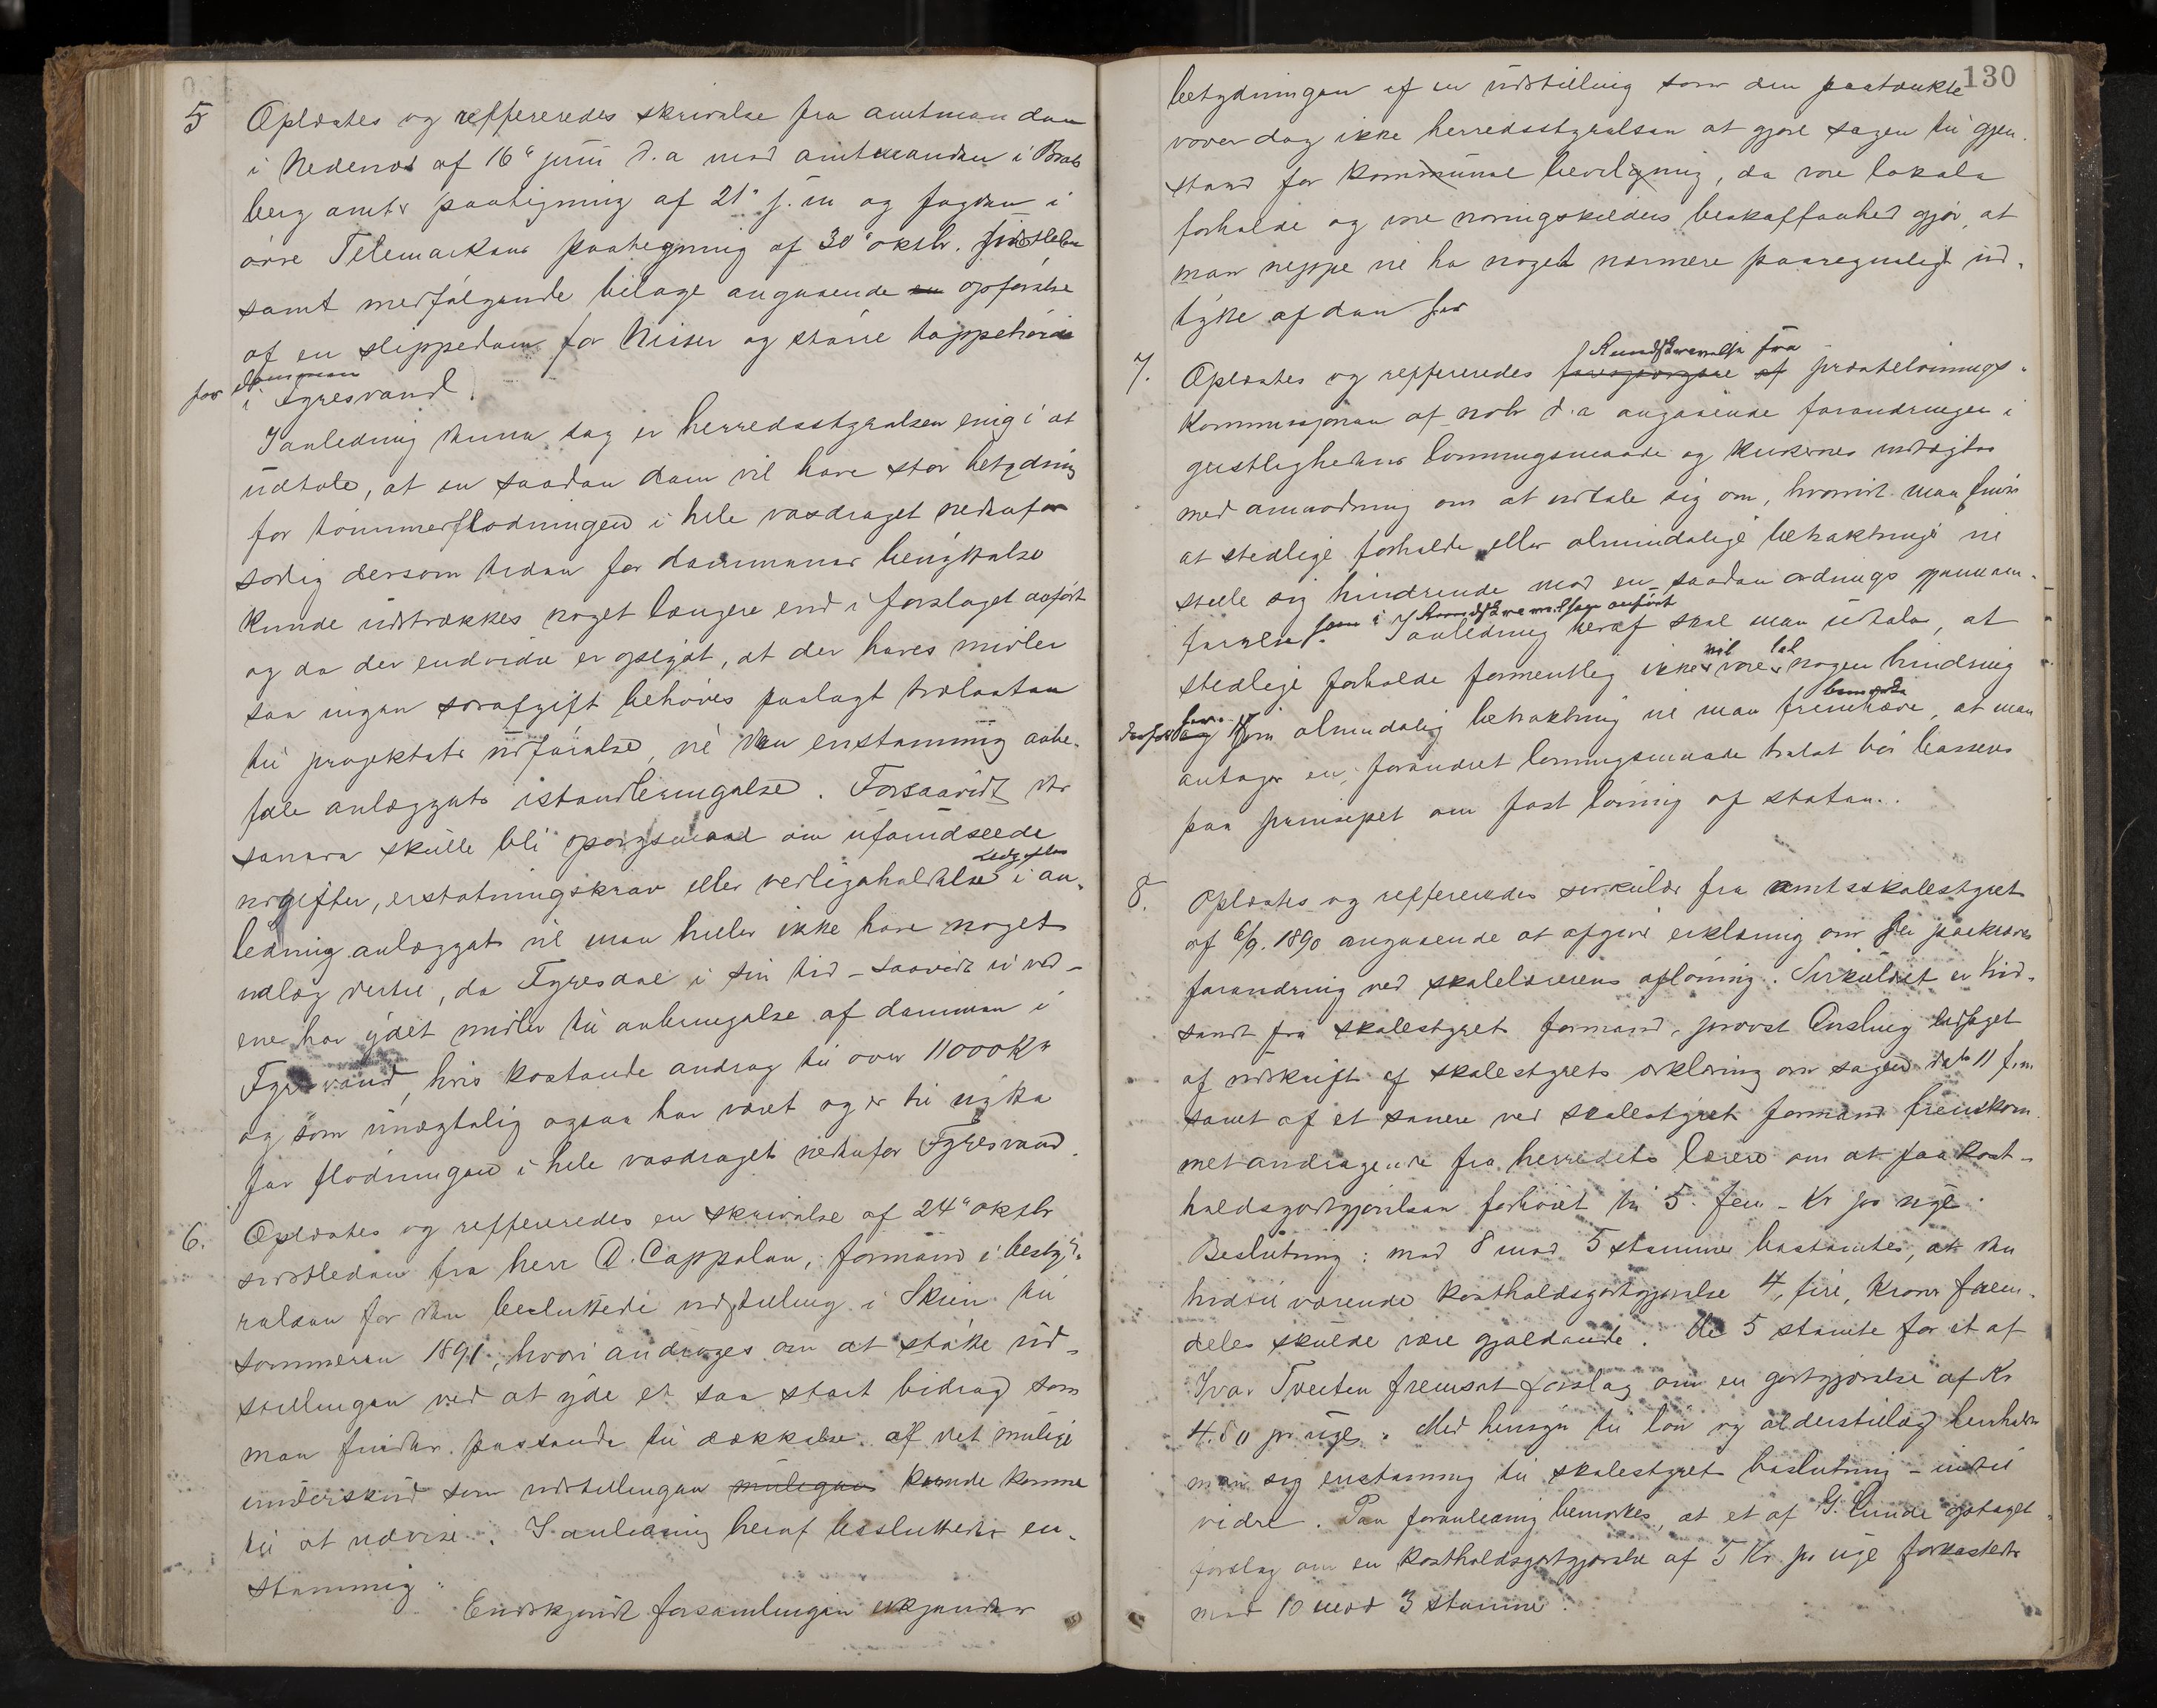 5 Oplæstes og reffereredes skrivelse fra amtmanden
i Nedenes af 16" juni d.a med amtmanden i Brats
berg amts paategning af 21" s.m og fogden i
øvre Telemarkens paategning af 30" oktbr. sidstleden
samt medfølgende bilage angaaende en opførelse
af en slippedam for Nisser og større tappehøide
for dammen
i Fyresvand.
I anledning denne sag er herredsstyrelsen enig i at
udtale, at en saadan dam vil have stor betydning
for tømmerflødningen i hele vasdraget nedenfor
særlig dersom tiden for dammenes benyttelse
kunde udstrækkes noget længere end i forslaget anført
og da der endvidere er oplyst, at der haves midler
saa ingen særafgift behøves paalagt trælasten
til projektets udførelse, vil man enstemmig anbe-
fale anlæggets istandbringelse. Forsaavidt der
senere skulle bli spørgsmaal om uforudseede
udgifter, erstatningskrav eller vedligeholdelse i an-
ledning anlægget vil man heller ikke have noget
udlæg dertil, da Fyresdal i sin tid - saavidt vi ved -
ene har ydet midler til anbringelse af dammen i
Fyresvand, hvis kostende androg til over 11000 Kr
og som unægtelig ogsaa har været og er til nytte
for flødningen i hele vasdraget nedenfor Fyresvand.
6. Oplæstes og reffereredes en skrivelse af 24" oktbr
sidstleden fra herr D. Cappelen, formand i besty-
relsen for den besluttede udstilling i Skien til
sommeren 1891, hvori andrages om at støtte ud-
stillingen ved at yde et saa stort bidrag som
man finder passende til dækkelse af det mulige
underskud som udstillingen muligens kunde komme
til at udvise. I anledning heraf besluttedes en-
stemmig:
Endskjønt forsamlingen erkjender
130
betydningen af en udstilling som den paatænkte
vover dog ikke herredsstyrelsen at gjøre sagen til gjen-
stand for kommunal bevilgning, da vore lokale
forholde og vore næringskilders beskaffenhed gjør, at
man neppe vil ha noget nærmere paaregneligt ud-
bytte af den før
Rundskrivelse fra
7. Oplæstes og reffereredes forespørgsel af præstelønnings-
kommissjonen af novbr d.a angaaende forandringer i
geistlighedens lønningsmaade og kirkernes indtægter
med anmodning om at udtale sig om, hvorvidt man finder
at stedlige forholde eller almindelige betraktninger vil
stille sig hindrende mod en saadan ordnings gjennem-
som i Rundskrivelsen anført
førelse. I anledning heraf skal man udtale, at
stedlige forholde formentlig ikke vil være nogen hindring
derfor og som almindelig betraktning vil man bemerke fremhæve, at man
antager en forandret lønningsmaade bør basseres
paa prinsipet om fast lønning af staten.
8. Oplæstes og reffereredes sirkulær fra amtsskolestyret
af 6/9. 1890 angaaende at afgive erklæring om den paakrævede
forandring ved skolelærerens aflønning. Sirkulæret er hid-
sendt fra skolestyrets formand, provst Anslug ledsaget
af udskrift af skolestyrets erklæring om sagen dat. 11 f.m
samt af et senere ved skolestyrets formand fremkom
met andragende fra herredets lærere om at faa kost-
holdsgodtgjørelsen forhøiet til 5. fem - Kr pr uge.
Beslutning: med 8 mod 5 stemmer bestemtes, at den
hidtil værende kostholdsgodtgjørelse 4, fire, kroner frem-
deles skulde være gjældende. De 5 stemte for et af
Ivar Tveiten fremsat forslag om en godtgjørelse af Kr
4.50 pr uge. Med hensyn til løn og alderstillæg henholder
man sig enstemmig til skolestyrets beslutning - indtil
videre. Paa foranledning bemerkes, at et af G. Lunde optaget
forslag om en kostholdsgodtgjørelse af 5 Kr pr uge forkastedes
med 10 mod 3 stemmer.